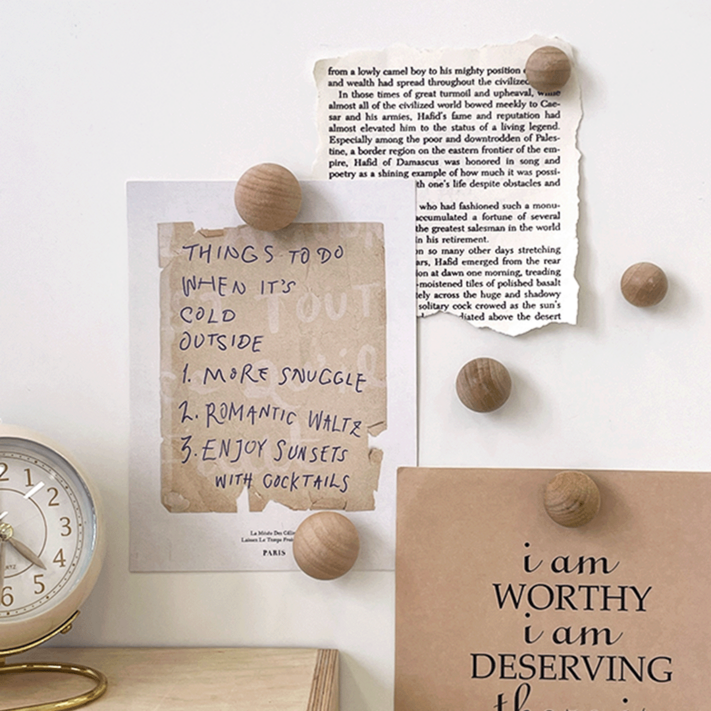 from a lowly camel boy to his mighty position
and wealth had spread throughout the civilized
In those times of great turmoil and upheaval, while
almost all of the civilized world bowed meekly to Cae-
sar and his armies, Hafid's fame and reputation had
almost elevated him to the status of a living legend.
Especially among the poor and downtrodden of Pales-
tine, a border region on the eastern frontier of the em-
pire, Hafid of Damascus was honored in song and
poetry as a shining example of how much it was possi-
th one's life despite obstacles and
who had fashioned such a monu-
accumulated a fortune of several
the greatest salesman in the world
in his retirement.
n so many other days stretching
ars, Hafid emerged from the rear
ion at dawn one morning, treading
-moistened tiles of polished basalt
tely across the huge and shadowy
solitary cock crowed as the sun's
diated above the desert
THINGS TO DO
WHEN IT'S
COLD
OUTSIDE
1. MORE SNUGGLE
2. ROMANTIC WALTZ
3. ENJOY SUNSETS
WITH COCKTAILS
TOUT
PARIS
i am
WORTHY
i am
DESERVING
12
1
2
3
4
5
6